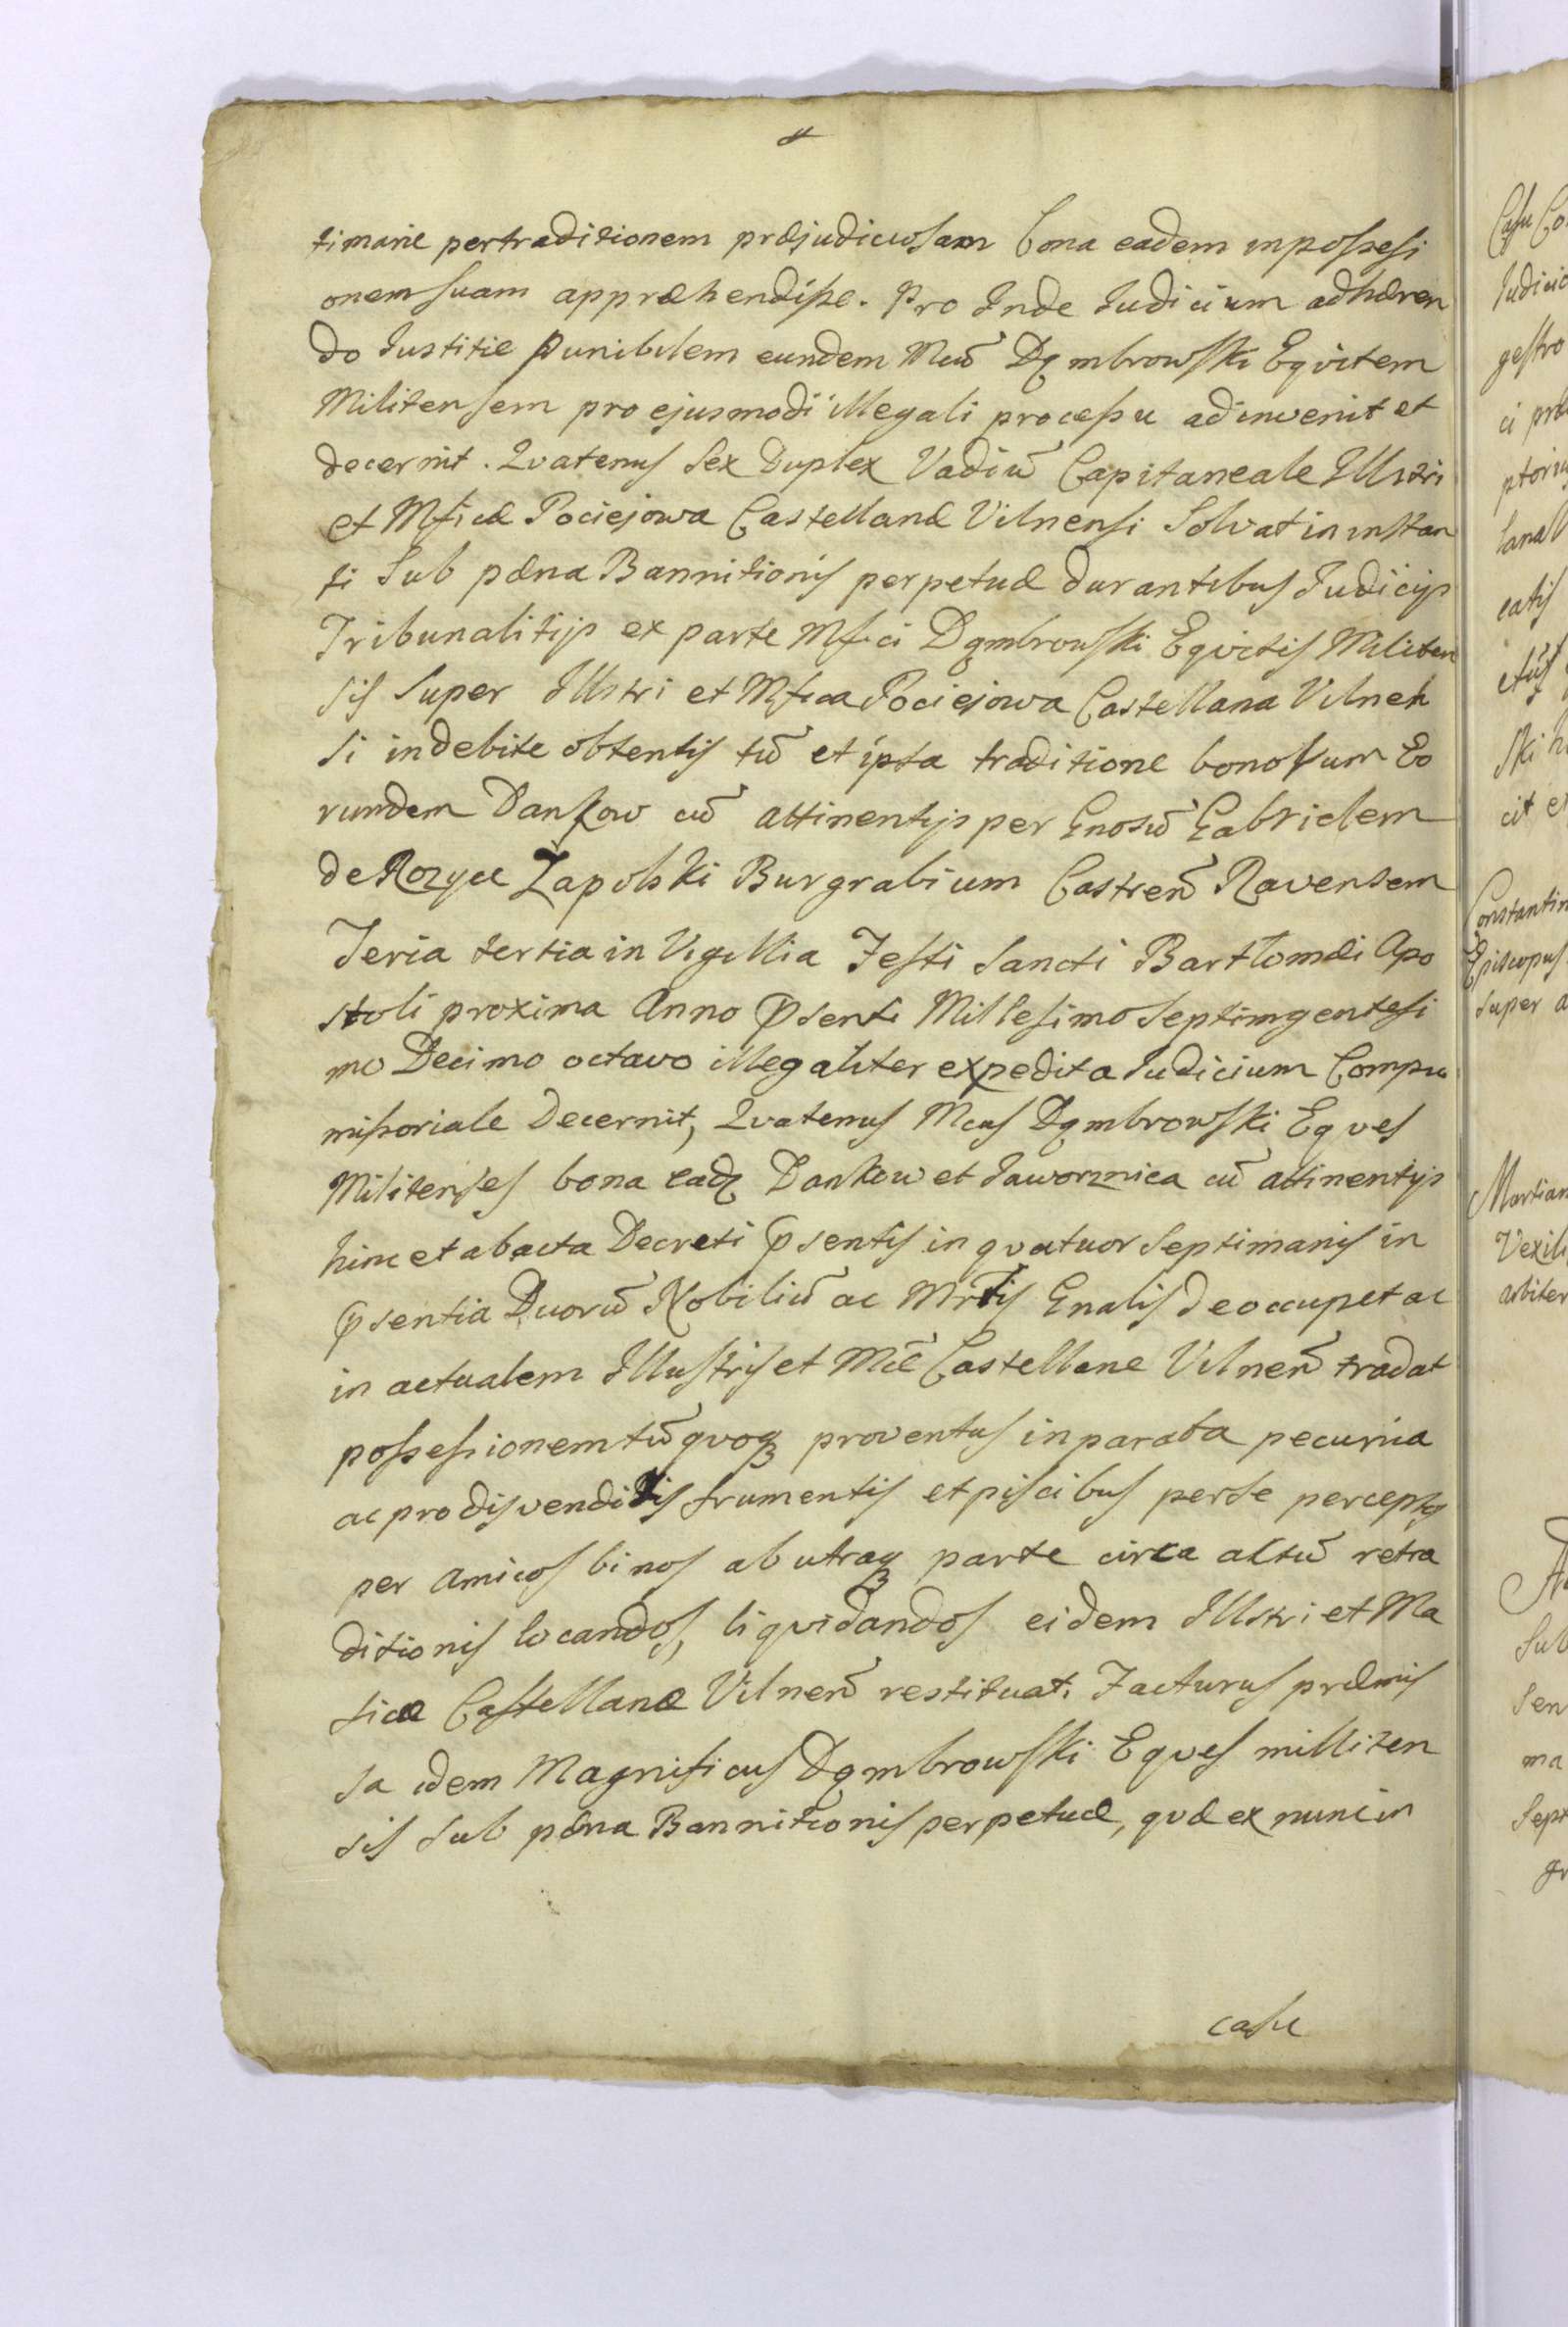 timarie pertraditionem præjudiciosam bona eadem inpossesi
onem suam appræhendisse. Pro Inde Iudicium adhæren
do Iustitiæ punibilem eundem Mcū Dąmbrowski Eqvitem
Militensem pro ejusmodi illegali processu adinvenit et
decernit. Qvatenus Sex Duplex Vadiū Capitaneale Illstri
et Mficæ Pociejowa Castellanæ Vilnensi Solvat in instan
ti Sub pæna Bannitionis perpetuæ durantibus Iudicijs
Tribunalitijs ex parte Mfici Dąmbrowski Eqvitis Militen
sis Super Illstri et Mfica Pociejowa Castellana Vilnen
si indebite obtentis tū et ipsa traditione bonorum Eo
rundem Dankow cū attinentijs per Gnosū Gabrielem
de Rozyce Zapolski Burgrabium Castren̄ Ravensem
Feria tertia in Vigillia Festi Sancti Bartlomæi Apo
stoli proxima Anno p̄senti Millesimo Septimgentesi
mo Decimo octavo illegaliter expedita Iudicium Compro
missoriale Decernit, Qvatenus Mcus Dąmbrowski Eqves
Militenses bona eadq Dankow et Jaworznica cū attinentijs
hinc et ab acta Decreti p̄sentis in qvatuor Septimanis in
p̄sentia Duorū Nobiliū ac Mrlis Gnalis deoccupet ac
in actualem Illustris et Mcē Castellane Vilnen̄ tradat
possessionem tū qvoqꝫ proventus in parata pecunia
ac pro disvenditis frumentis et piscibus perse perceptos
per amicos binos ab utraqꝫ parte circa actū retra
ditionis locandos, liqvidandos eidem Illstri et Ma
ficæ Castellanæ Vilnen̄ restituat. Facturus præmis
sa idem Magnificus Dąmbrowski Eqves milliten
sis sub pæna Bannitionis perpetuæ, qvæ ex nunc in
casu